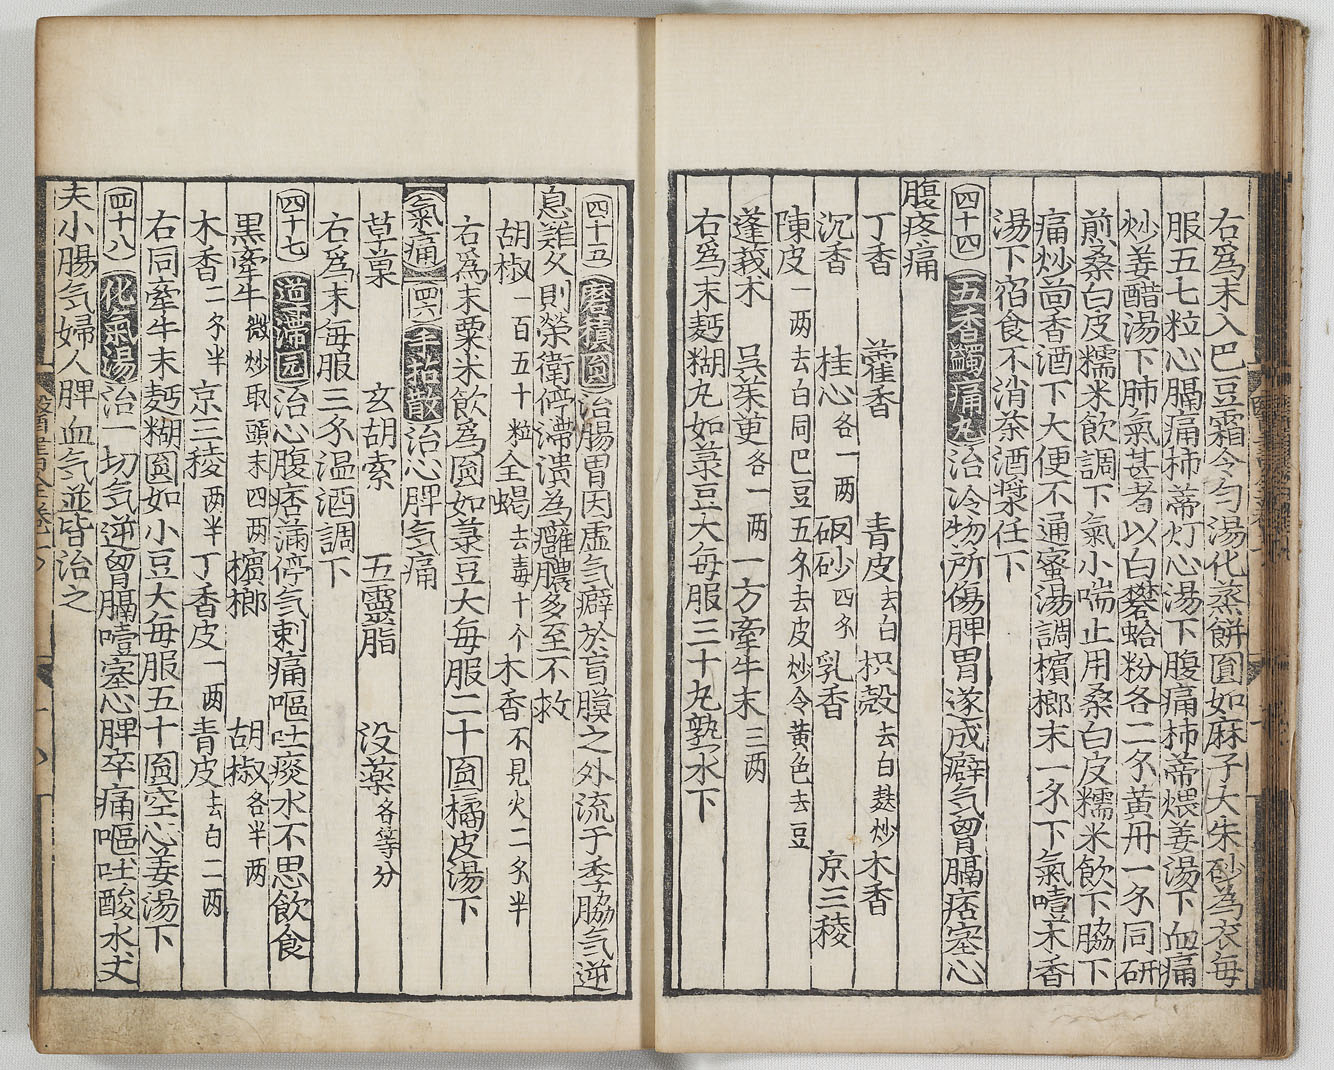 右爲末入巴豆霜令勻湯化蒸餅圎如麻子大朱砂為衣每
服五七粒心膈痛柿蒂灯心湯下腹痛柿蒂煨姜湯下血痛
炒姜醋湯下肺氣甚者以白礬蛤粉各二分黄丹一分同研
煎桑白皮糯米飲調下氣小喘止用桑白皮糯米飲下脇下
痛炒茴香酒下大便不通蜜湯調檳榔末一分下氣噎木香
湯下宿食不消茶酒漿任下
四十四 五香蠲痛丸 治冷物所傷脾胃遂成癖气胷膈痞塞心
腹疼痛
丁香 藿香 青皮去白 枳殼去白麩炒 木香
沉香 桂心各一两 硇砂四分 乳香 京三稜
陳皮一两去白同巴豆五分去皮炒令黄色去豆
蓬莪术 吳茱萸各一两 一方牽牛末三两
右爲末麪糊丸如菉豆大每服三十丸熟水下
四十五 磨積圎 治腸胃因虚气癖於肓膜之外流于季脇气逆
息難久則榮衛停滯潰為癰膿多至不救
胡椒一百五十粒 全蝎去毒十个 木香不見火二分半
右爲末粟米飲爲圎如菉豆大每服二十圎橘皮湯下
氣痛 四六 手拈散 治心脾气痛
草菓 玄胡索 五靈脂 没藥各等分
右爲末每服三分温酒調下
四十七 導滯圎 治心腹痞滿停气刺痛嘔吐痰水不思飲食
黒牽牛微炒取頭末四两 檳榔 胡椒各半两
木香二分半 京三稜两半 丁香皮一两 青皮去白二两
右同牽牛末麪糊圎如小豆大每服五十圎空心姜湯下
四十八 化氣湯 治一切气逆胷膈噎塞心脾卒痛嘔吐酸水丈
夫小腸气婦人脾血气並皆治之